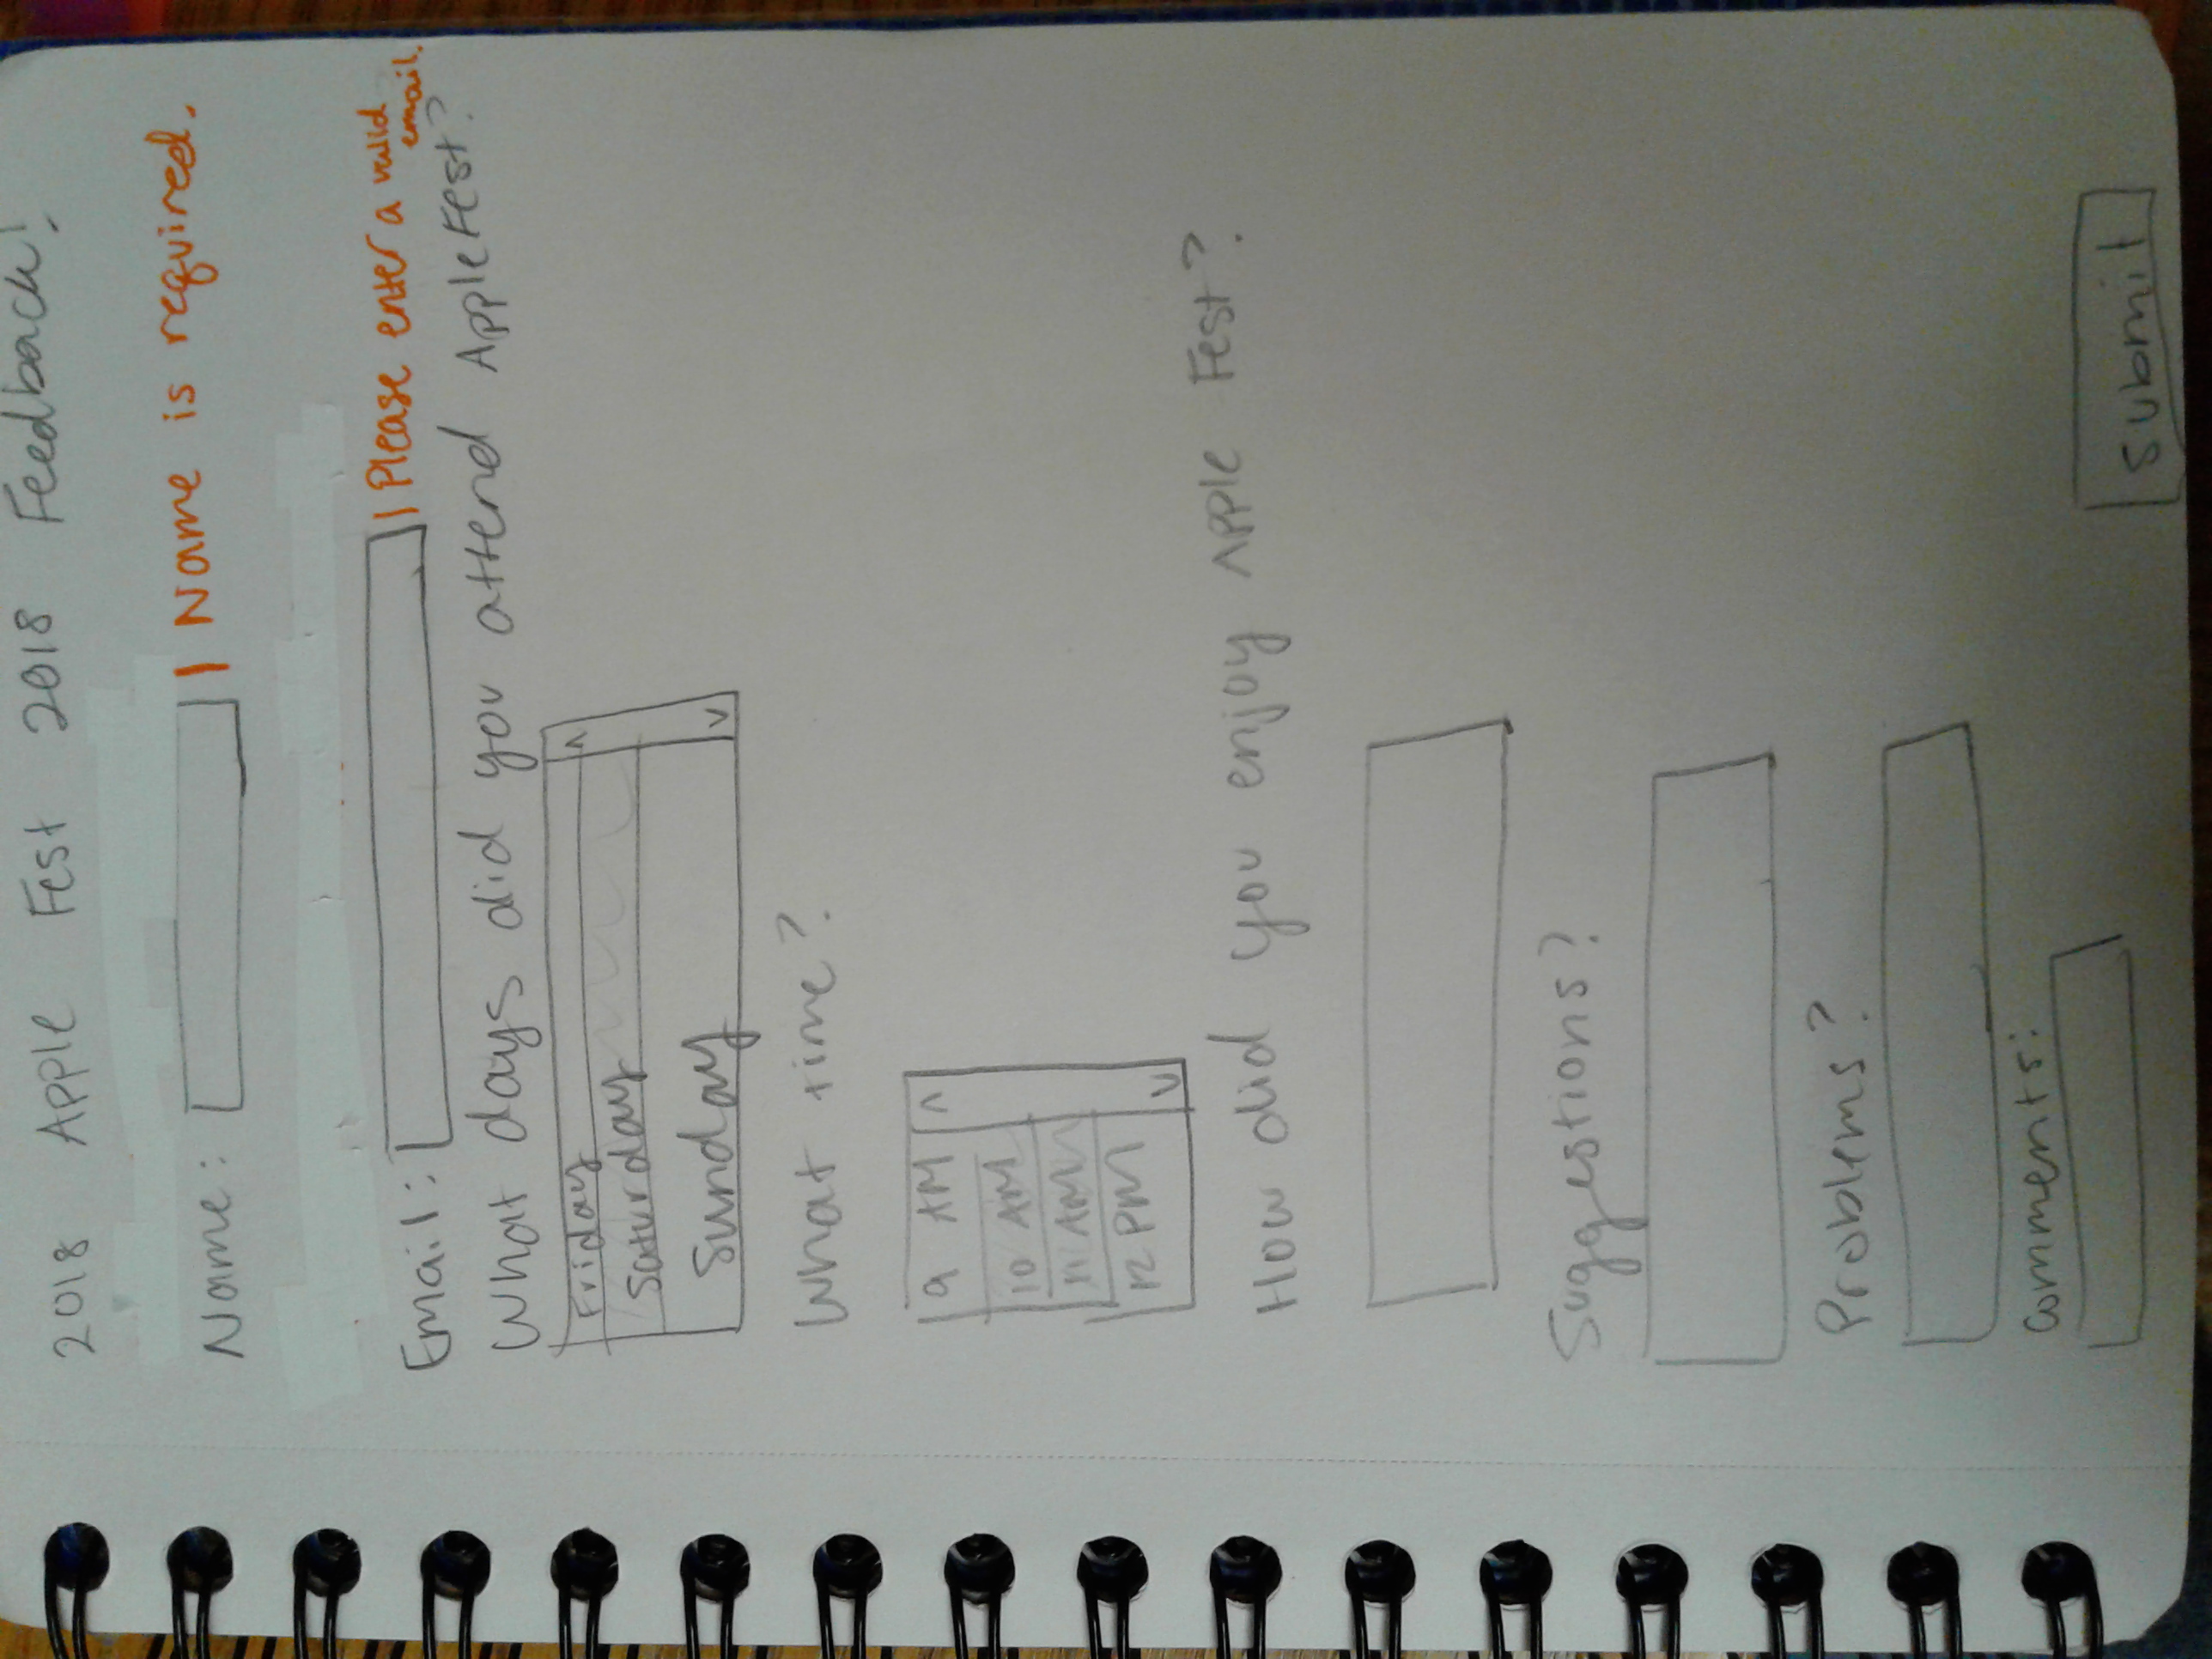 2018 Apple Fest 2018 Feedback!
Name: | Name is required.
Email: | Please enter a valid email.
What days did you attend AppleFest?
Friday
Saturday
Sunday
What time?
9 AM
10 AM
11 AM
12 PM
How did you enjoy Apple Fest?
Suggestions?
Problems?
Comments:
Submit